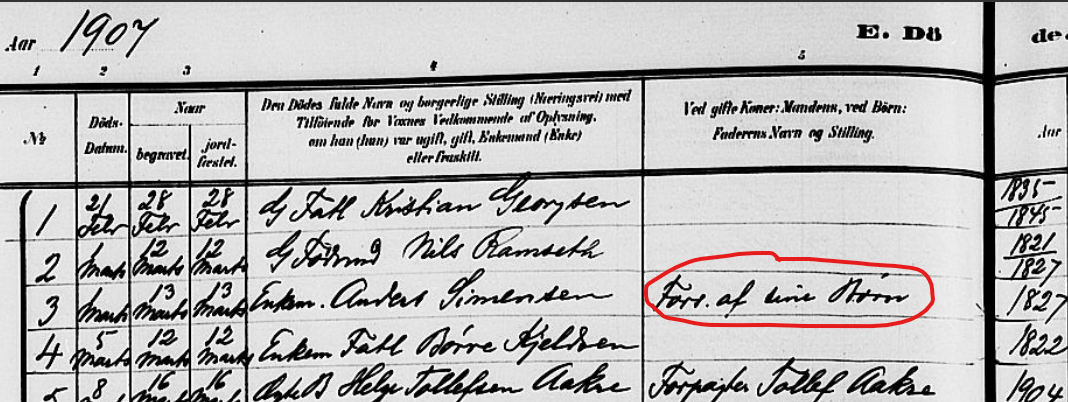 Aar 1907
E. Dö de
1 2 3 4 5
№ Döds-Datum. Naar begravet. jord-fæstet.
Den Dödes fulde Navn og borgerlige Stilling (Næringsvei) med
Tilföiende for Voxnes Vedkommende af Oplysning,
om han (hun) var ugift, gift, Enkemand (Enke)
eller fraskilt.
Ved gifte Koner: Mandens, ved Börn:
Faderens Navn og Stilling.
Aar
1 21 Febr 28 Febr 28 Febr G Fatl Kristian Georgsen 1835 1845
2 1 Marts 12 Marts 12 Marts G Nils Ramseth 1821 1827
3 1 Marts 13 Marts 13 Marts Enkem. Anders Simensen Fors. af sine Børn 1827
4 5 Marts 12 Marts 12 Marts Enkem Fatl Børre Kjeldsen 1822
5 8 16 16 Helge Tollefsen Aakre Forpagter Tollef Aakre 1904